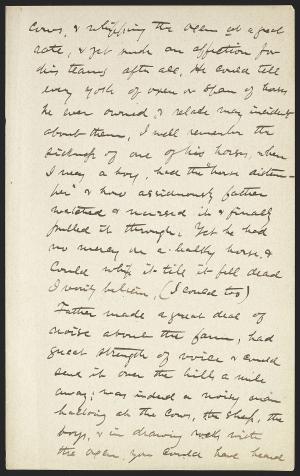 cows, & whipping the oxen at a great
rate, & yet such an affection for
his teams after all. He could tell
every yoke of oxen or span of horses
he ever owned, & relate many incidents
about them, I well remember the
sickness of one of his horses, when
I was a boy, had the "horse distem-
per" & how assiduously father
watched & nursed it & finally
pulled it through. Yet he had
no mercy on a healthy horse, &
could whip it till it fell dead
I verily believe, (I could too)
Father made a great deal of
noise about the farm, had
great strength of voice & could
send it over the hills a mile
away; was indeed a noisy man
hallooing at the cows, the sheep, the
boys, & in drawing rocks with
the oxen, you could have heard